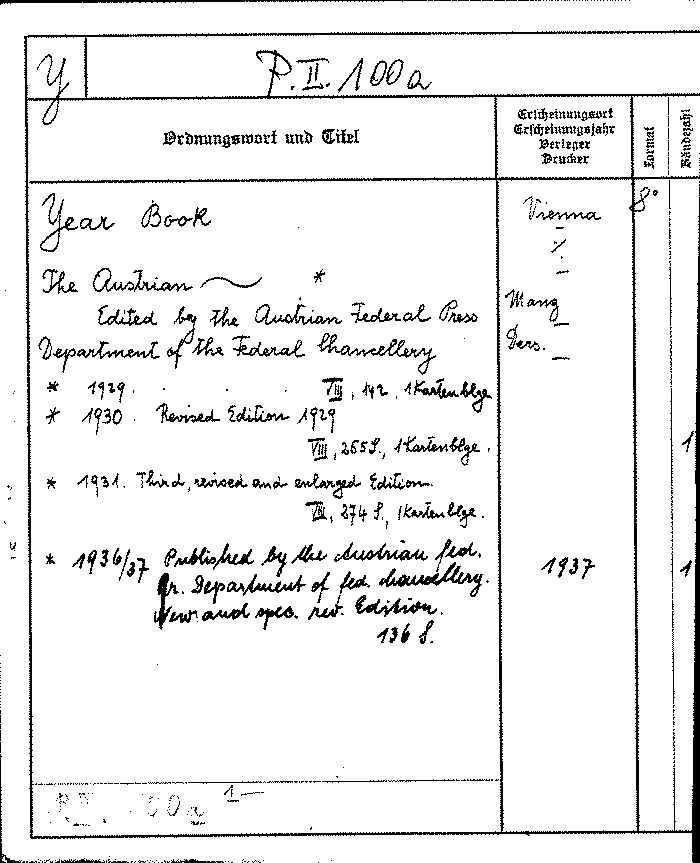 Y
P. II. 100a
Ordnungswort und Titel
Erscheinungsort
Erscheinungsjahr
Verleger
Drucker
Format
Bändezahl
Year Book
Vienna
8°
%
The Austrian ~ *
Manz
Edited by the Austrian Federal Press
Ders.
Department of the Federal Chancellery
* 1929 . . . VIII, 142, 1 Kartenblge
* 1930 . Revised Edition 1929
VIII, 265 S., 1 Kartenblge. 1
* 1931. Third, revised and enlarged Edition.
VIII, 274 S., 1 Kartenblge.
* 1936/37 Published by the Austrian fed. 1937 1
Pr. Department of fed. chancellery.
New and spec. rev. Edition.
136 S.
P. II. 100a 1—